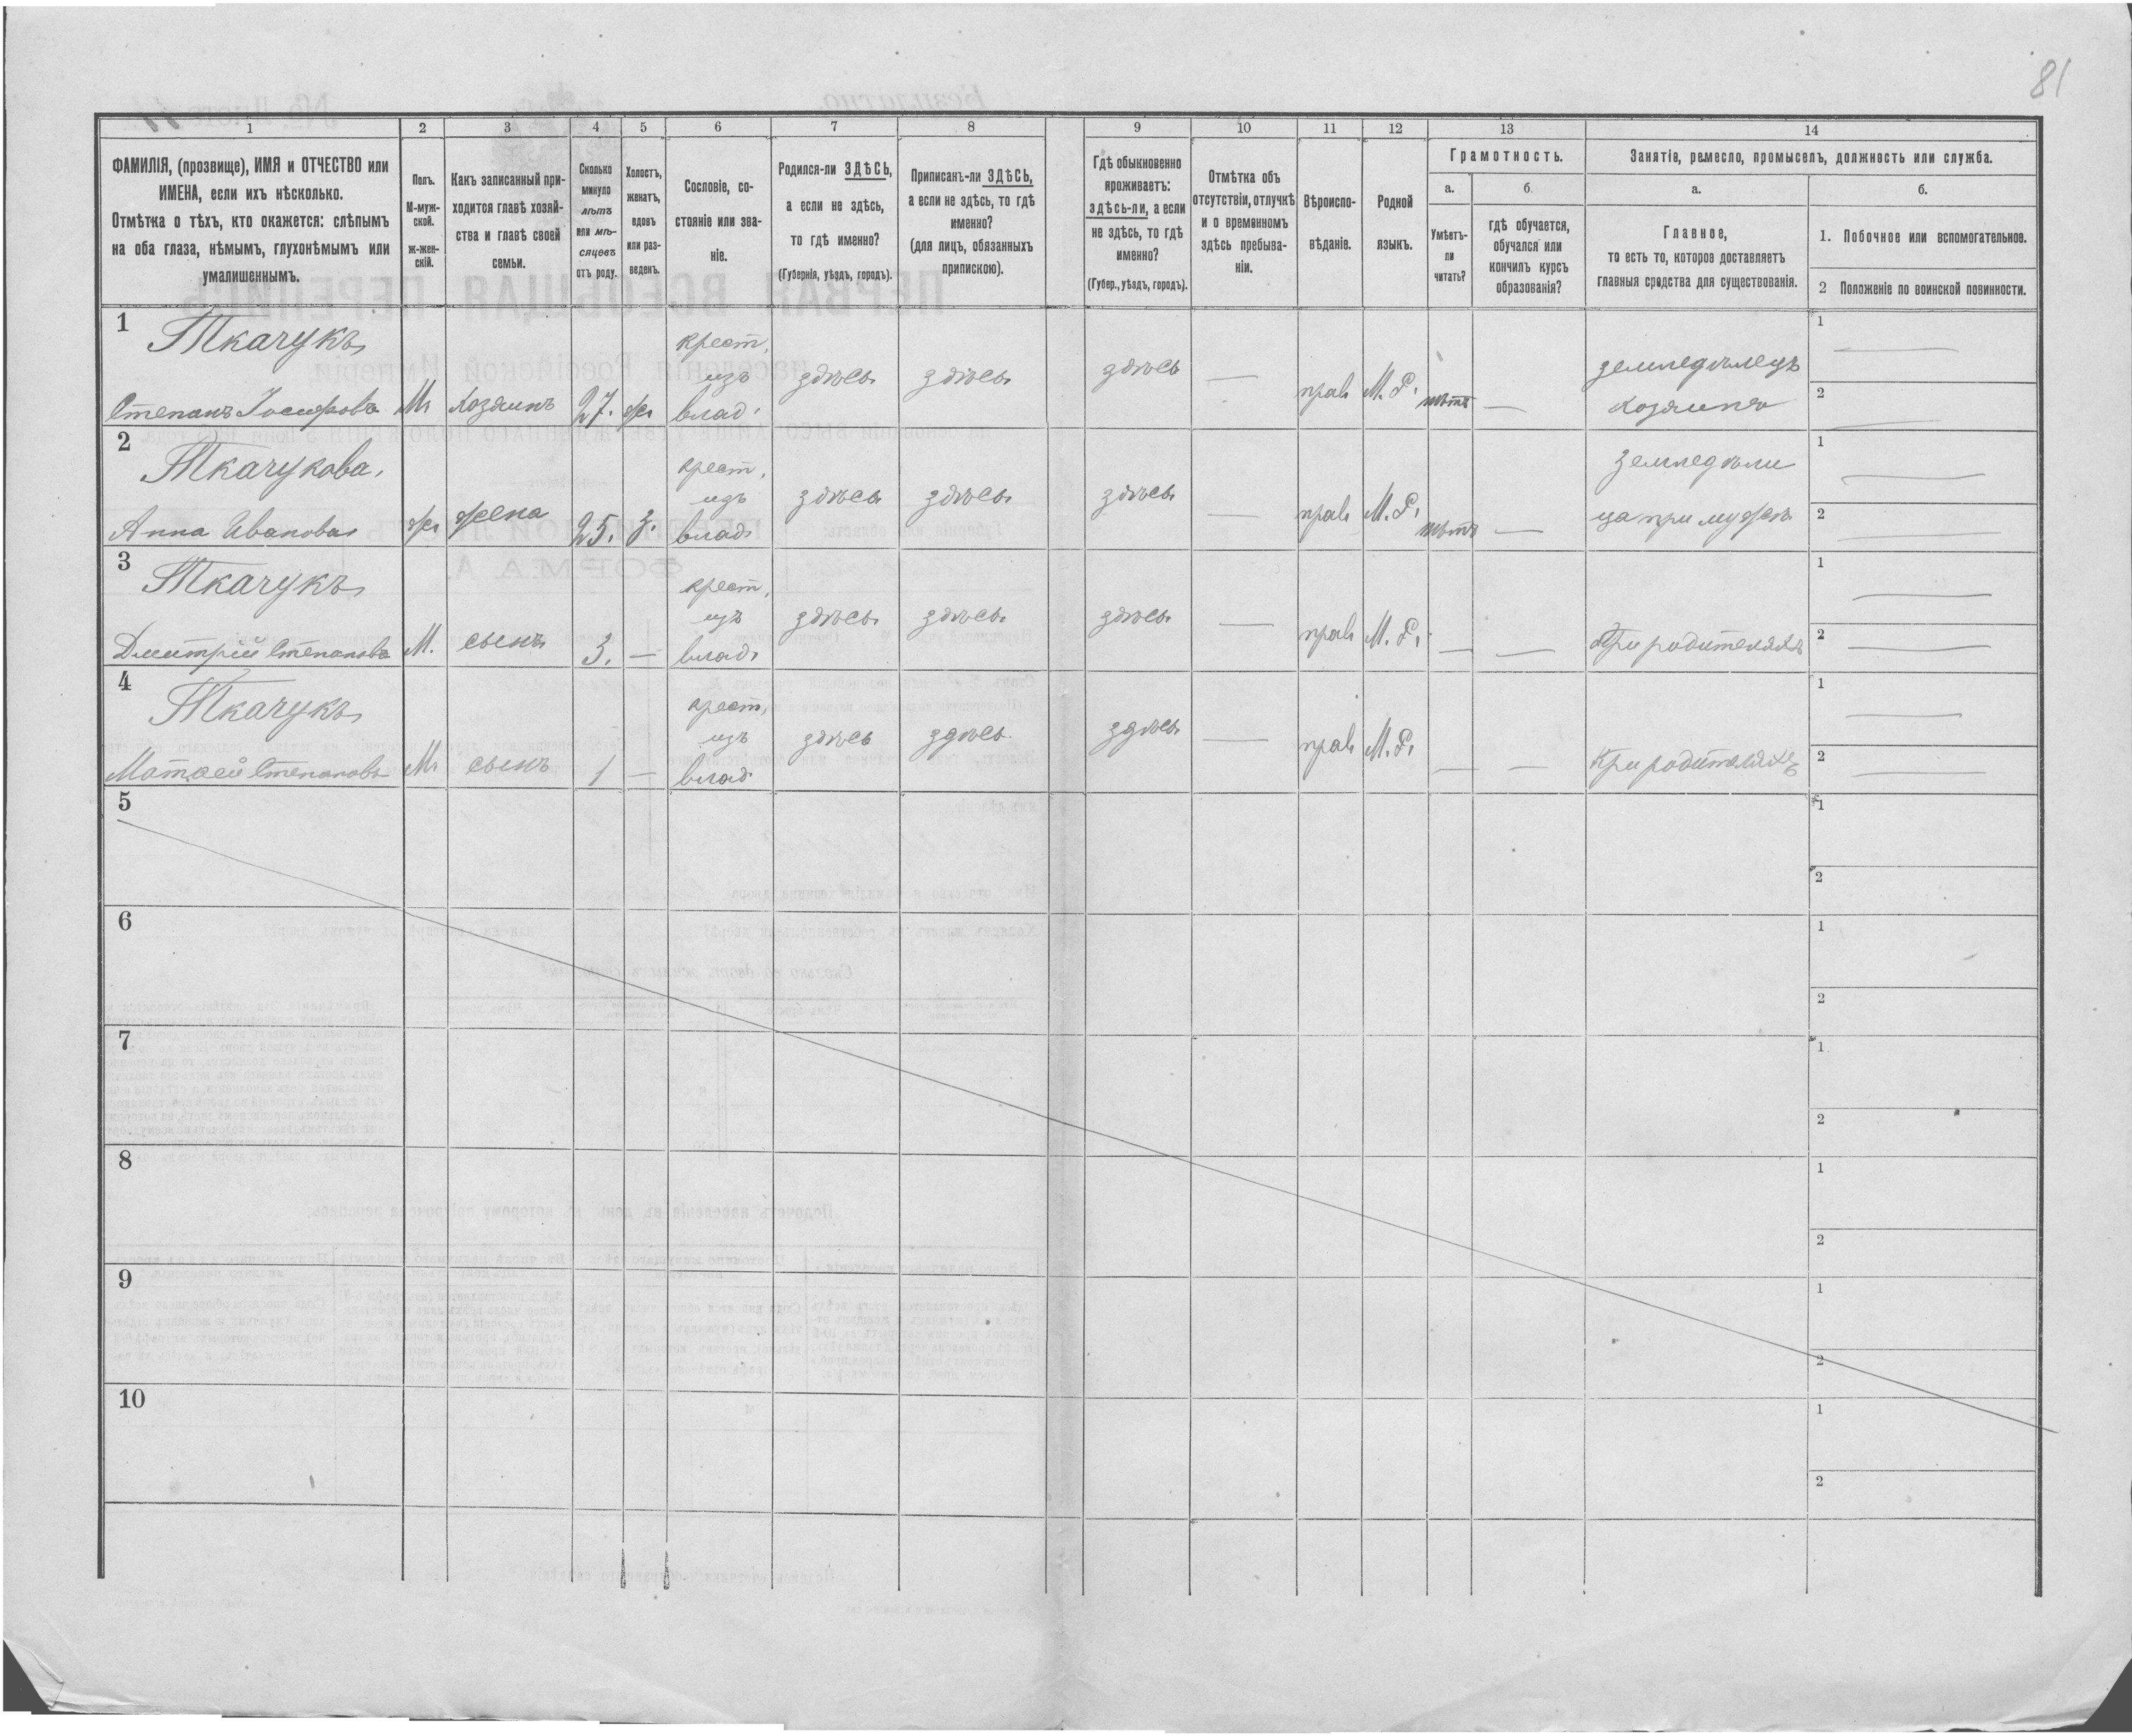 81
1 2 3 4 5 6 7 8 9 10 11 12 13 14
ФАМИЛІЯ, (прозвище), ИМЯ и ОТЧЕСТВО или
ИМЕНА, если ихъ нѣсколько.
Отмѣтка о тѣхъ, кто окажется: слѣпымъ
на оба глаза, нѣмымъ, глухонѣмымъ или
умалишеннымъ.
Полъ.
М-муж-
ской.
ж-жен-
скій.
Какъ записанный при-
ходится главѣ хозяй-
ства и главѣ своей
семьи.
Сколько
минуло
лѣтъ
или мѣ-
сяцевъ
отъ роду.
Холостъ,
женатъ,
вдовъ
или раз-
веденъ.
Сословіе, со-
стояніе или зва-
ніе.
Родился-ли ЗДѢСЬ,
а если не здѣсь,
то гдѣ именно?
(Губернія, уѣздъ, городъ).
Приписанъ-ли ЗДѢСЬ,
а если не здѣсь, то гдѣ
именно?
(для лицъ, обязанныхъ
припискою).
Гдѣ обыкновенно
проживаетъ:
здѣсь-ли, а если
не здѣсь, то гдѣ
именно?
(Губер., уѣздъ, городъ).
Отмѣтка объ
отсутствіи, отлучкѣ
и о временномъ
здѣсь пребыва-
ніи.
Вѣроиспо-
вѣданіе.
Родной
языкъ.
Грамотность.
а. б.
Умѣетъ-
ли
читать?
гдѣ обучается,
обучался или
кончилъ курсъ
образованія?
Занятіе, ремесло, промыселъ, должность или служба.
а. б.
Главное,
то есть то, которое доставляетъ
главныя средства для существованія.
1. Побочное или вспомогательное.
2 Положеніе по воинской повинности.
1 Ткачукъ
Степанъ Іосифовъ М. Хозяинъ 27. ж. крест. изъ влад. здѣсь здѣсь здѣсь — прав М. Р. нѣтъ — земледѣлецъ хозяинъ 1 — 2 —
2 Ткачукова
Анна Иванова ж. жена 25. з. крест. изъ влад. здѣсь здѣсь здѣсь — прав М. Р. нѣтъ — земледѣли ца при мужѣ 1 — 2 —
3 Ткачукъ
Дмитрій Степановъ М. сынъ 3. — крест. изъ влад. здѣсь здѣсь здѣсь — прав М. Р. — — При родителяхъ 1 — 2 —
4 Ткачукъ
Матвей Степановъ М. сынъ 1 — крест. изъ влад. здѣсь здѣсь здѣсь — прав М. Р. — — При родителяхъ 1 — 2 —
5 1 2
6 1 2
7 1 2
8 1 2
9 1 2
10 1 2